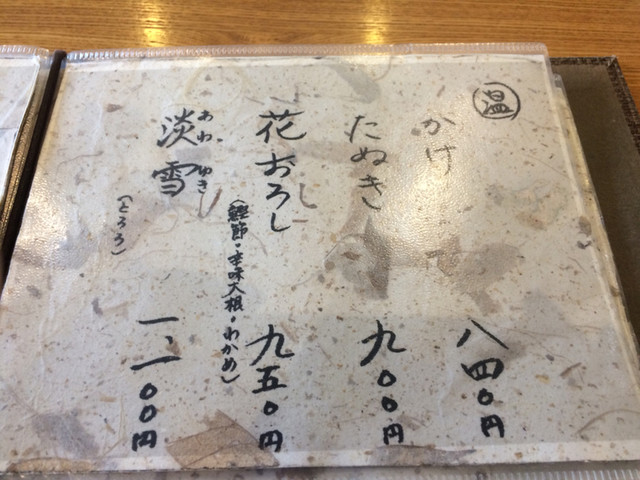 温
かけ 八四〇円
たぬき 九〇〇円
花おろし 九五〇円
(鰹節・辛味大根・わかめ)
淡雪 一、一〇〇円
あわゆき
(とろろ)